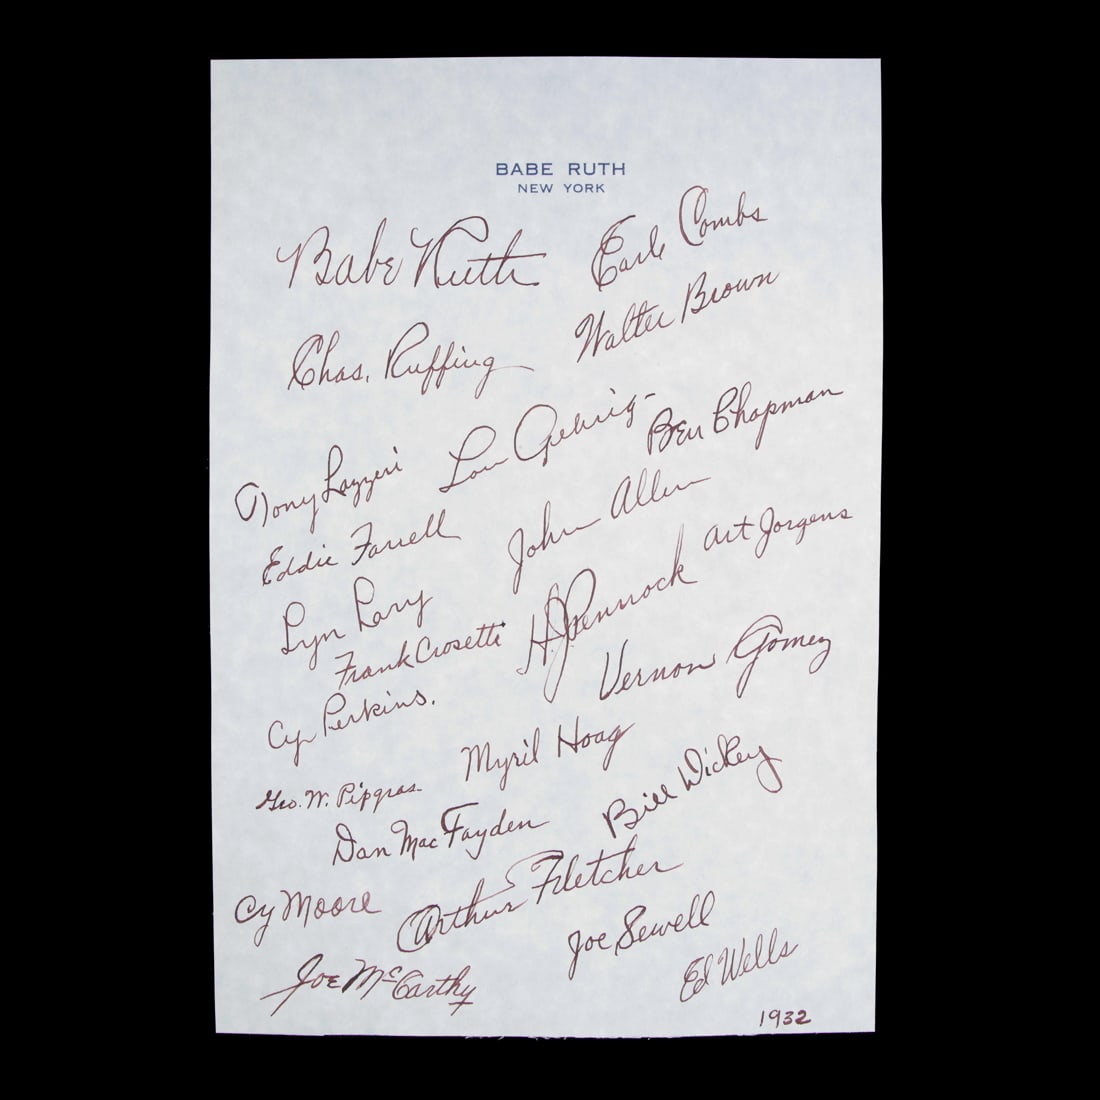 BABE RUTH
NEW YORK
Babe Ruth
Earle Combs
Chas. Ruffing
Walter Brown
Tony Lazzeri
Lou Gehrig
Ben Chapman
Eddie Farrell
John Allen
Art Jorgens
Lyn Lary
Frank Crosetti
H J Pennock
Cy Perkins.
Vernon Gomez
Myril Hoag
Geo. W. Pipgras
Bill Dickey
Dan MacFayden
Cy Moore
Arthur Fletcher
Joe Sewell
Joe McCarthy
Ed Wells
1932